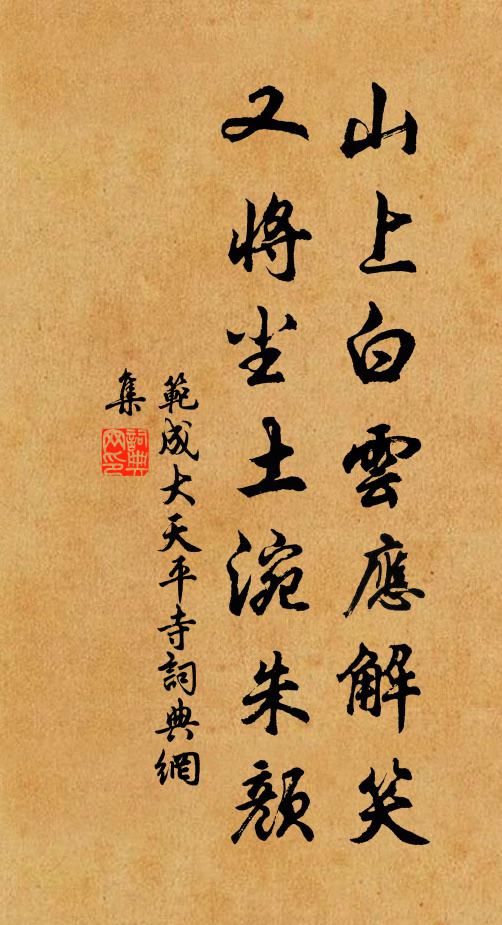 山上白雲應解笑
又将尘土涴朱顔
範成大天平寺詞典網
集
詞典網印